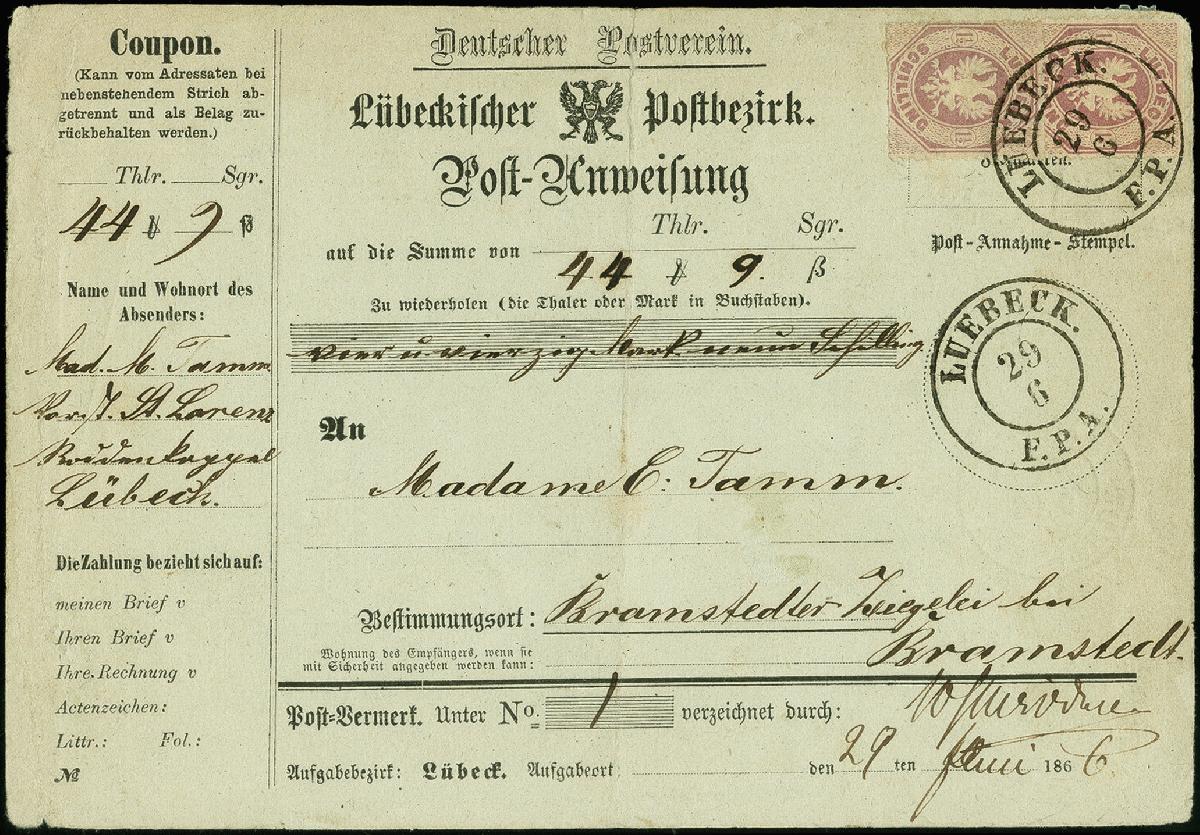 Coupon.
(Kann vom Adressaten bei
nebenstehendem Strich ab-
getrennt und als Belag zu-
rückbehalten werden.)
Thlr. Sgr.
44 9 ß
Name und Wohnort des
Absenders:
Mad. M. Tamm
Vorst. St. Lorenz
Roddenkoppel
Lübeck.
Die Zahlung bezieht sich auf:
meinen Brief v
Ihren Brief v
Ihre Rechnung v
Actenzeichen:
Littr.: Fol.:
№
Deutscher Postverein.
Lübeckischer Postbezirk.
Post-Anweisung
Thlr. Sgr.
auf die Summe von
44 9. ß
Zu wiederholen (die Thaler oder Mark in Buchstaben).
vier u vierzig Mark neun Schilling
An
Madame E. Tamm.
Bestimmungsort: Bramstedter Ziegelei bei
Bramstedt.
Wohnung des Empfängers, wenn sie
mit Sicherheit angegeben werden kann:
Post-Vermerk. Unter No. 1 verzeichnet durch:
Aufgabebezirk: Lübeck. Aufgabeort den 29 ten Juni 1866
SCHILLING
LUEBECK.
29
6
F.P.A.
Post-Annahme-Stempel.
LUEBECK.
29
6
F.P.A.